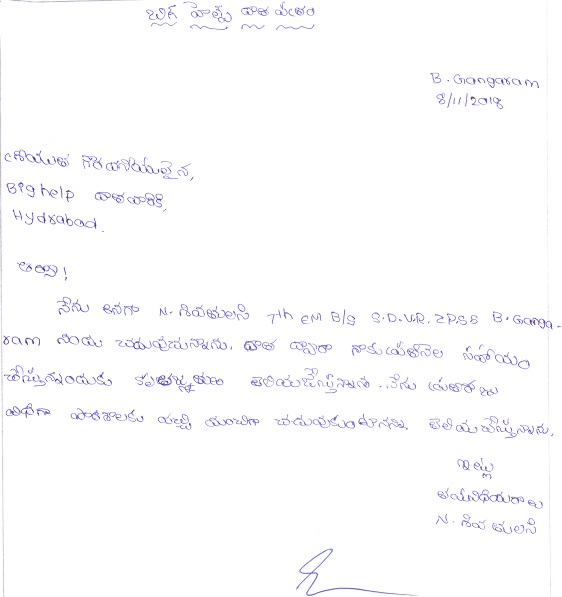 బిగ్ హెల్ప్ దాత పత్రం
B. Gangaram
8/11/2018
గౌరవనీయులైన,
Big help దాత వారికి,
Hydrabad.
అయ్యా!
నేను అనగా N. శివతులసి 7th EM B/g S.D.V.R. ZPSS B. Ganga-
ram నందు చదువుచున్నాను. దాత ద్వారా నాకు ప్రతినెల సహాయం
చేస్తున్నందుకు కృతజ్ఞతలు తెలియజేస్తున్నాను. నేను ప్రతిరోజు
విధిగా పాఠశాలకు వచ్చి మంచిగా చదువుకుంటానని తెలియచేస్తున్నాను.
ఇట్లు
తమ విధేయురాలు
N. శివ తులసి